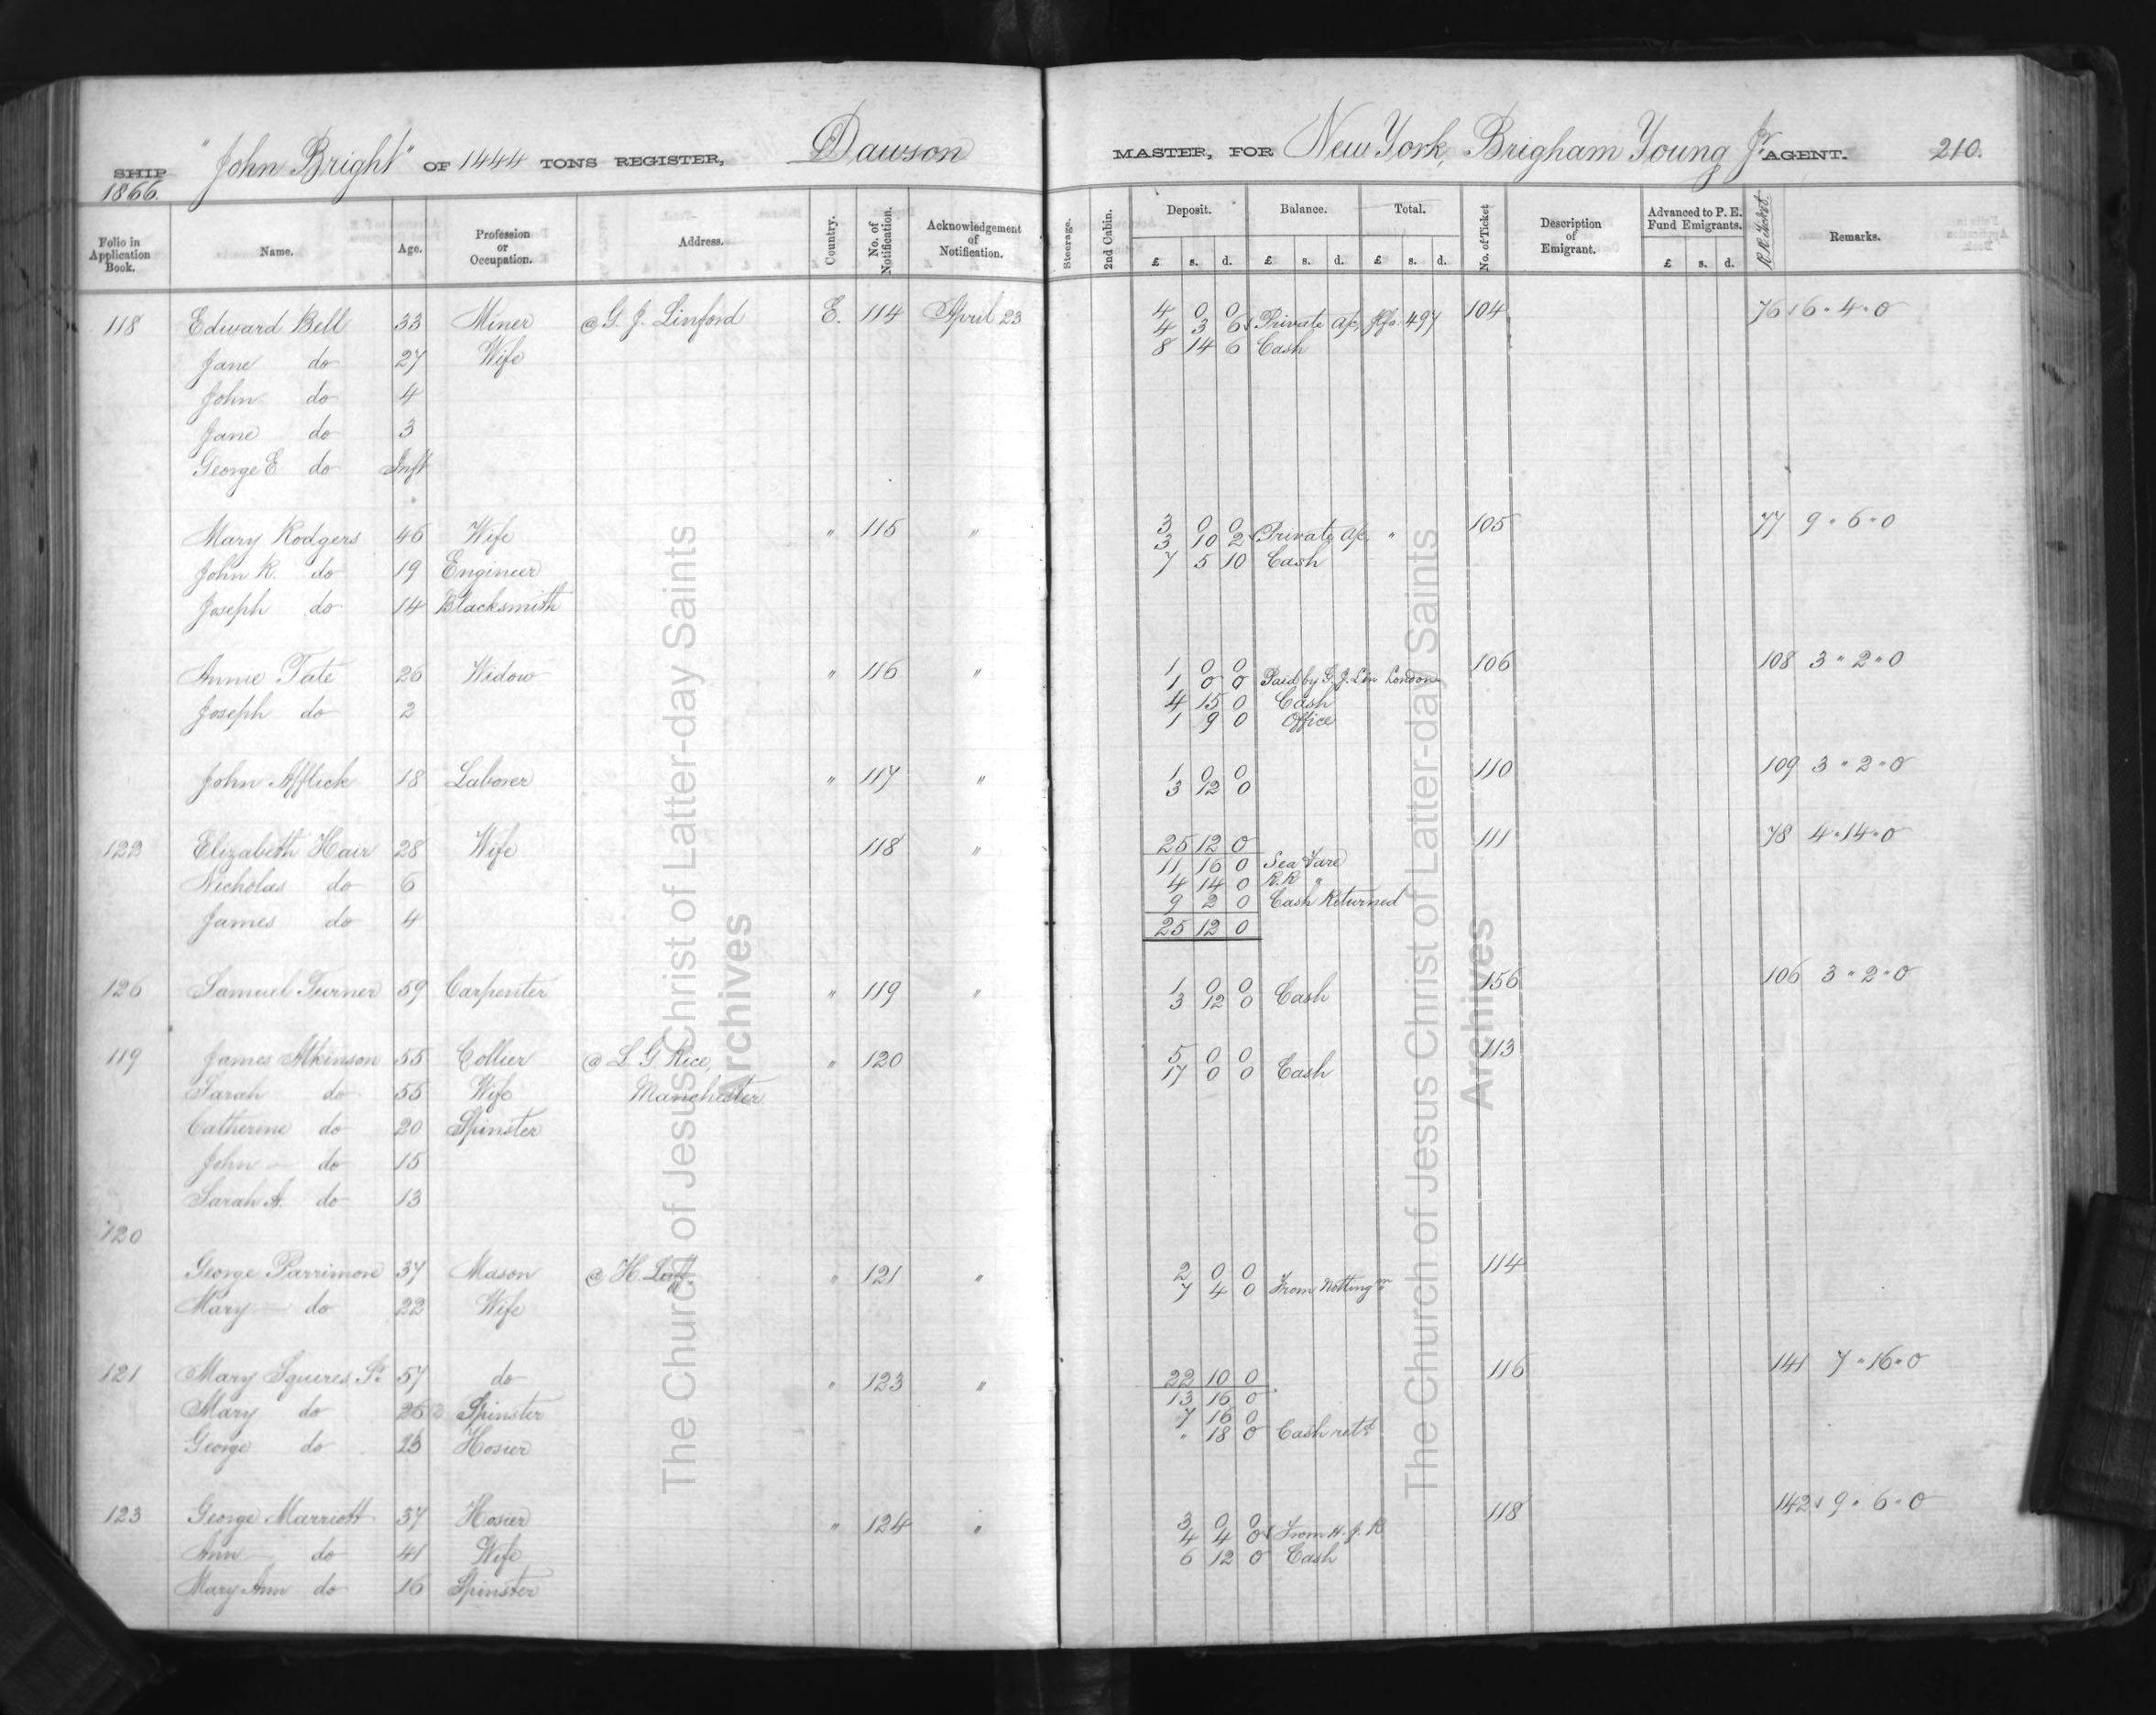 SHIP "John Bright" OF 1444 TONS REGISTER, Dawson MASTER, FOR New York, Brigham Young Jr. AGENT. 210.
1866.
Folio in Application Book. Name. Age. Profession or Occupation. Address. Country. No. of Notification. Acknowledgement of Notification. Steerage. 2nd Cabin. Deposit. £ s. d. Balance. £ s. d. Total. £ s. d. No. of Ticket Description of Emigrant. Advanced to P. E. Fund Emigrants. £ s. d. R.R. Ticket Remarks.
118 Edward Bell 33 Miner @ G. J. Linford E. 114 April 23 4 0 0 104 76 6 " 4 " 0
4 3 6 Private a/c, 497
Jane do 27 Wife 8 14 6 Cash
John do 4
Jane do 3
George E do Inft
Mary Rodgers 46 Wife " 115 " 3 0 0 105 77 9 " 6 " 0
3 10 2 Private a/c "
John R. do 19 Engineer 7 5 10 Cash
Joseph do 14 Blacksmith
Annie Tate 26 Widow " 116 " 1 0 0 106 108 3 " 2 " 0
1 0 0 Paid by G. J. Lin London
Joseph do 2 4 15 0 Cash
1 9 0 Office
John Afflick 18 Laborer " 117 " 1 0 0 110 109 3 " 2 " 0
3 12 0
122 Elizabeth Hair 28 Wife 118 " 25 12 0 111 78 4 " 14 " 0
11 16 0 Sea Fare
Nicholas do 6 4 14 0 R.R "
9 2 0 Cash Returned
James do 4 25 12 0
126 Samuel Turner 59 Carpenter " 119 " 1 0 0 156 106 3 " 2 " 0
3 12 0 Cash
119 James Atkinson 55 Collier @ L G Rice, " 120 5 0 0 113
17 0 0 Cash
Sarah do 55 Wife Manchester
Catherine do 20 Spinster
John do 15
Sarah A. do 13
120
George Parrimore 37 Mason @ H. " 121 " 2 0 0 114
7 4 0 From Nottingm
Mary do 22 Wife
121 Mary Squires Sr. 57 do " 123 " 22 10 0 116 141 7 " 16 " 0
13 16 0
Mary do 26 Spinster 7 16 0
George do 23 Hosier " 18 0 Cash retd.
123 George Marriott 37 Hosier " 124 " 3 0 0 118 142 9 " 6 " 0
4 4 0 From H. J. R
Ann do 41 Wife 6 12 0 Cash
Mary Ann do 16 Spinster
The Church of Jesus Christ of Latter-day Saints
Archives
The Church of Jesus Christ of Latter-day Saints
Archives